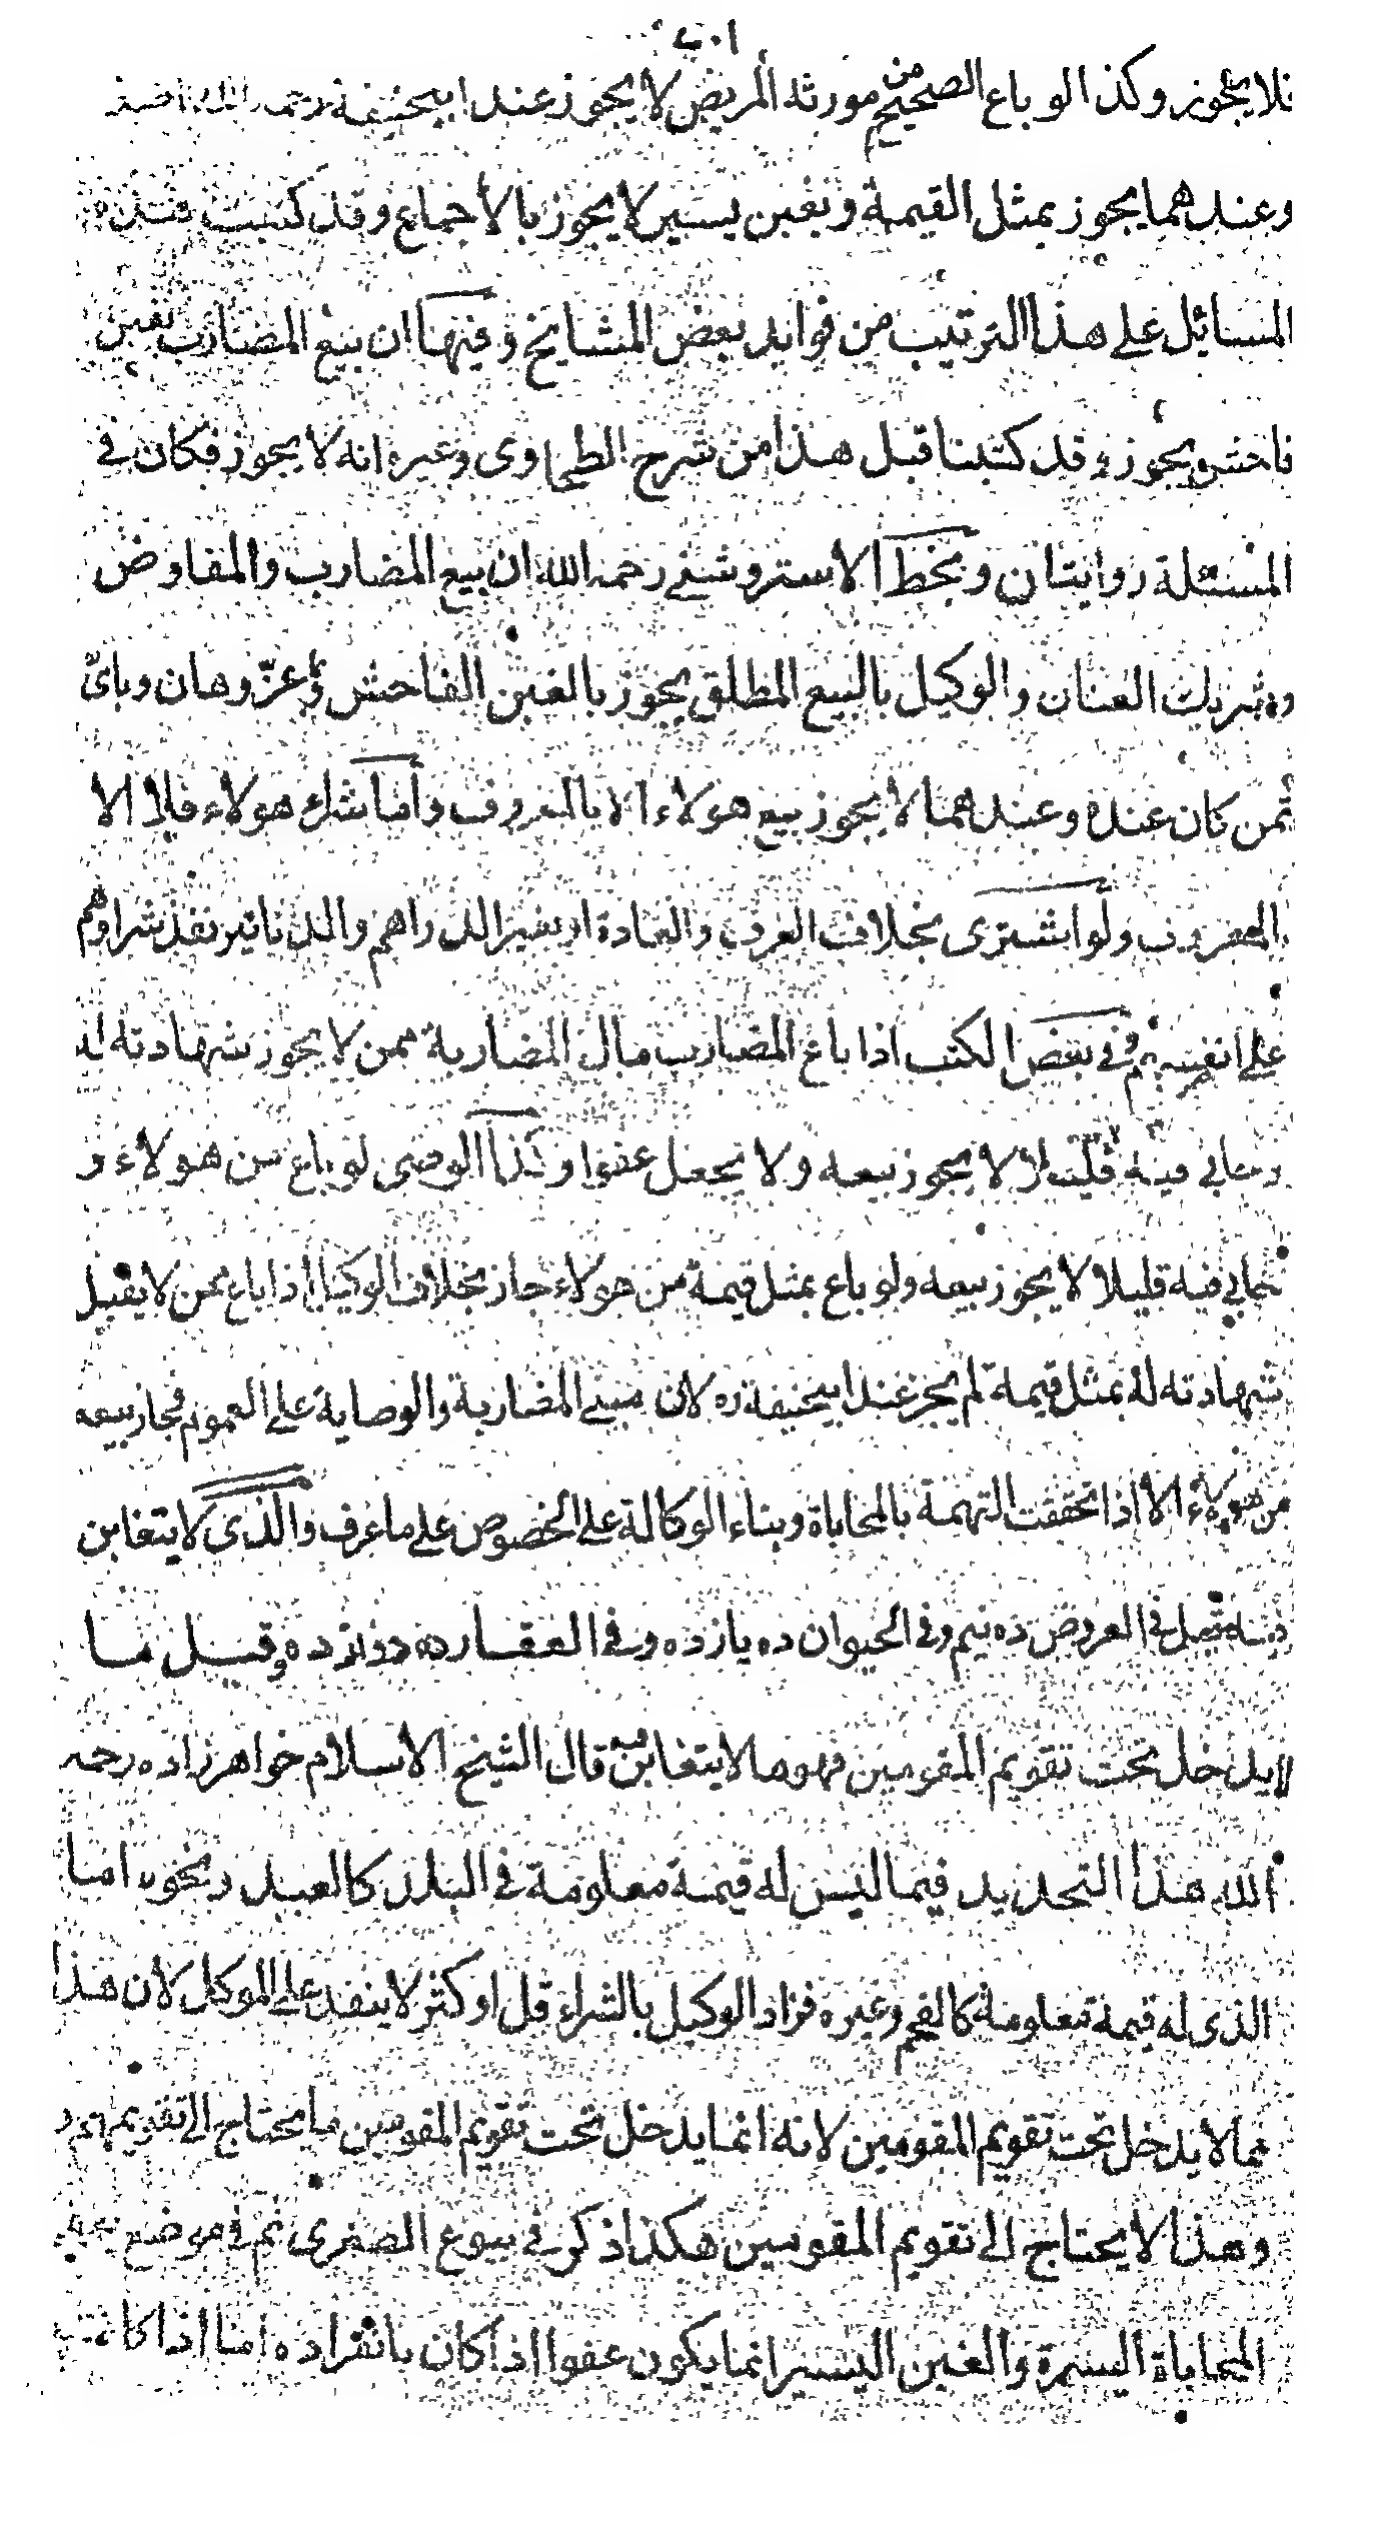 فلا يجوز وكذا لو باع الصحيح من مورثه المريض لا يجوز عند ابيحنيفة رحمه الله
وعندهما يجوز بمثل القيمة وبغبن يسير لا يجوز بالاجماع وقد كتبت هذه
المسائل على هذا الترتيب من فوائد بعض المشايخ وفيها ان بيع المضارب بغبن
فاحش يجوز وقد كتبنا قبل هذا من شرح الطحاوى وغيره انه لا يجوز فكان فى
المسئلة روايتان وبخط الاستروشنى رحمه الله ان بيع المضارب والمفاوض
وشريك العنان والوكيل بالبيع المطلق يجوز بالغبن الفاحش وبما عزّ وهان وباىّ
ثمن كان عنده وعندهما لا يجوز بيع هولاء الا بالمعروف واما شراء هولاء فلا الا
بالمعروف ولو اشترى بخلاف العرف والعادة او بغير الدراهم والدنانير نفذ شراوهم
على انفسهم وفى بعض الكتب اذا باع المضارب مال المضاربة ممن لا يجوز شهادته له
وحابى فيه قليلا لا يجوز بيعه ولا يجعل عفوا وكذا الوصى لو باع من هولاء و
حابى فيه قليلا لا يجوز بيعه ولو باع بمثل قيمة من هولاء جاز بخلاف الوكيل اذا باع ممن لا يقبل
شهادته له بمثل قيمة لم يجز عند ابيحنيفة ره لان مبنى المضاربة والوصاية على العموم فجاز بيعه
من هولاء الا اذا تحققت التهمة بالمحاباة وبناء الوكالة على الخصوص على ما عرف والذى لا يتغابن
فيه قيل فى العروض ده نيم وفى الحيوان ده يازده وفى العقار ده دوازده وقيل ما
لا يدخل تحت تقويم المقومين فهو ما لا يتغابن فيه قال الشيخ الاسلام خواهرزاده رحمه
الله هذا التحديد فيما ليس له قيمة معلومة فى البلد كالعبد ونحوه اما
الذى له قيمة معلومة كالفحم وغيره فزاد الوكيل بالشراء قل او كثر لا ينفذ على الموكل لان هذا
مما لا يدخل تحت تقويم المقومين لانه انما يدخل تحت تقويم المقومين ما يحتاج الى تقويمهم و
وهذا لا يحتاج الى تقويم المقومين هكذا ذكر فى بيوع الصغرى ثم فى موضع
المحاباة اليسيرة والغبن اليسير انما يكون عفوا اذا كان بانفراده اما اذا كانت